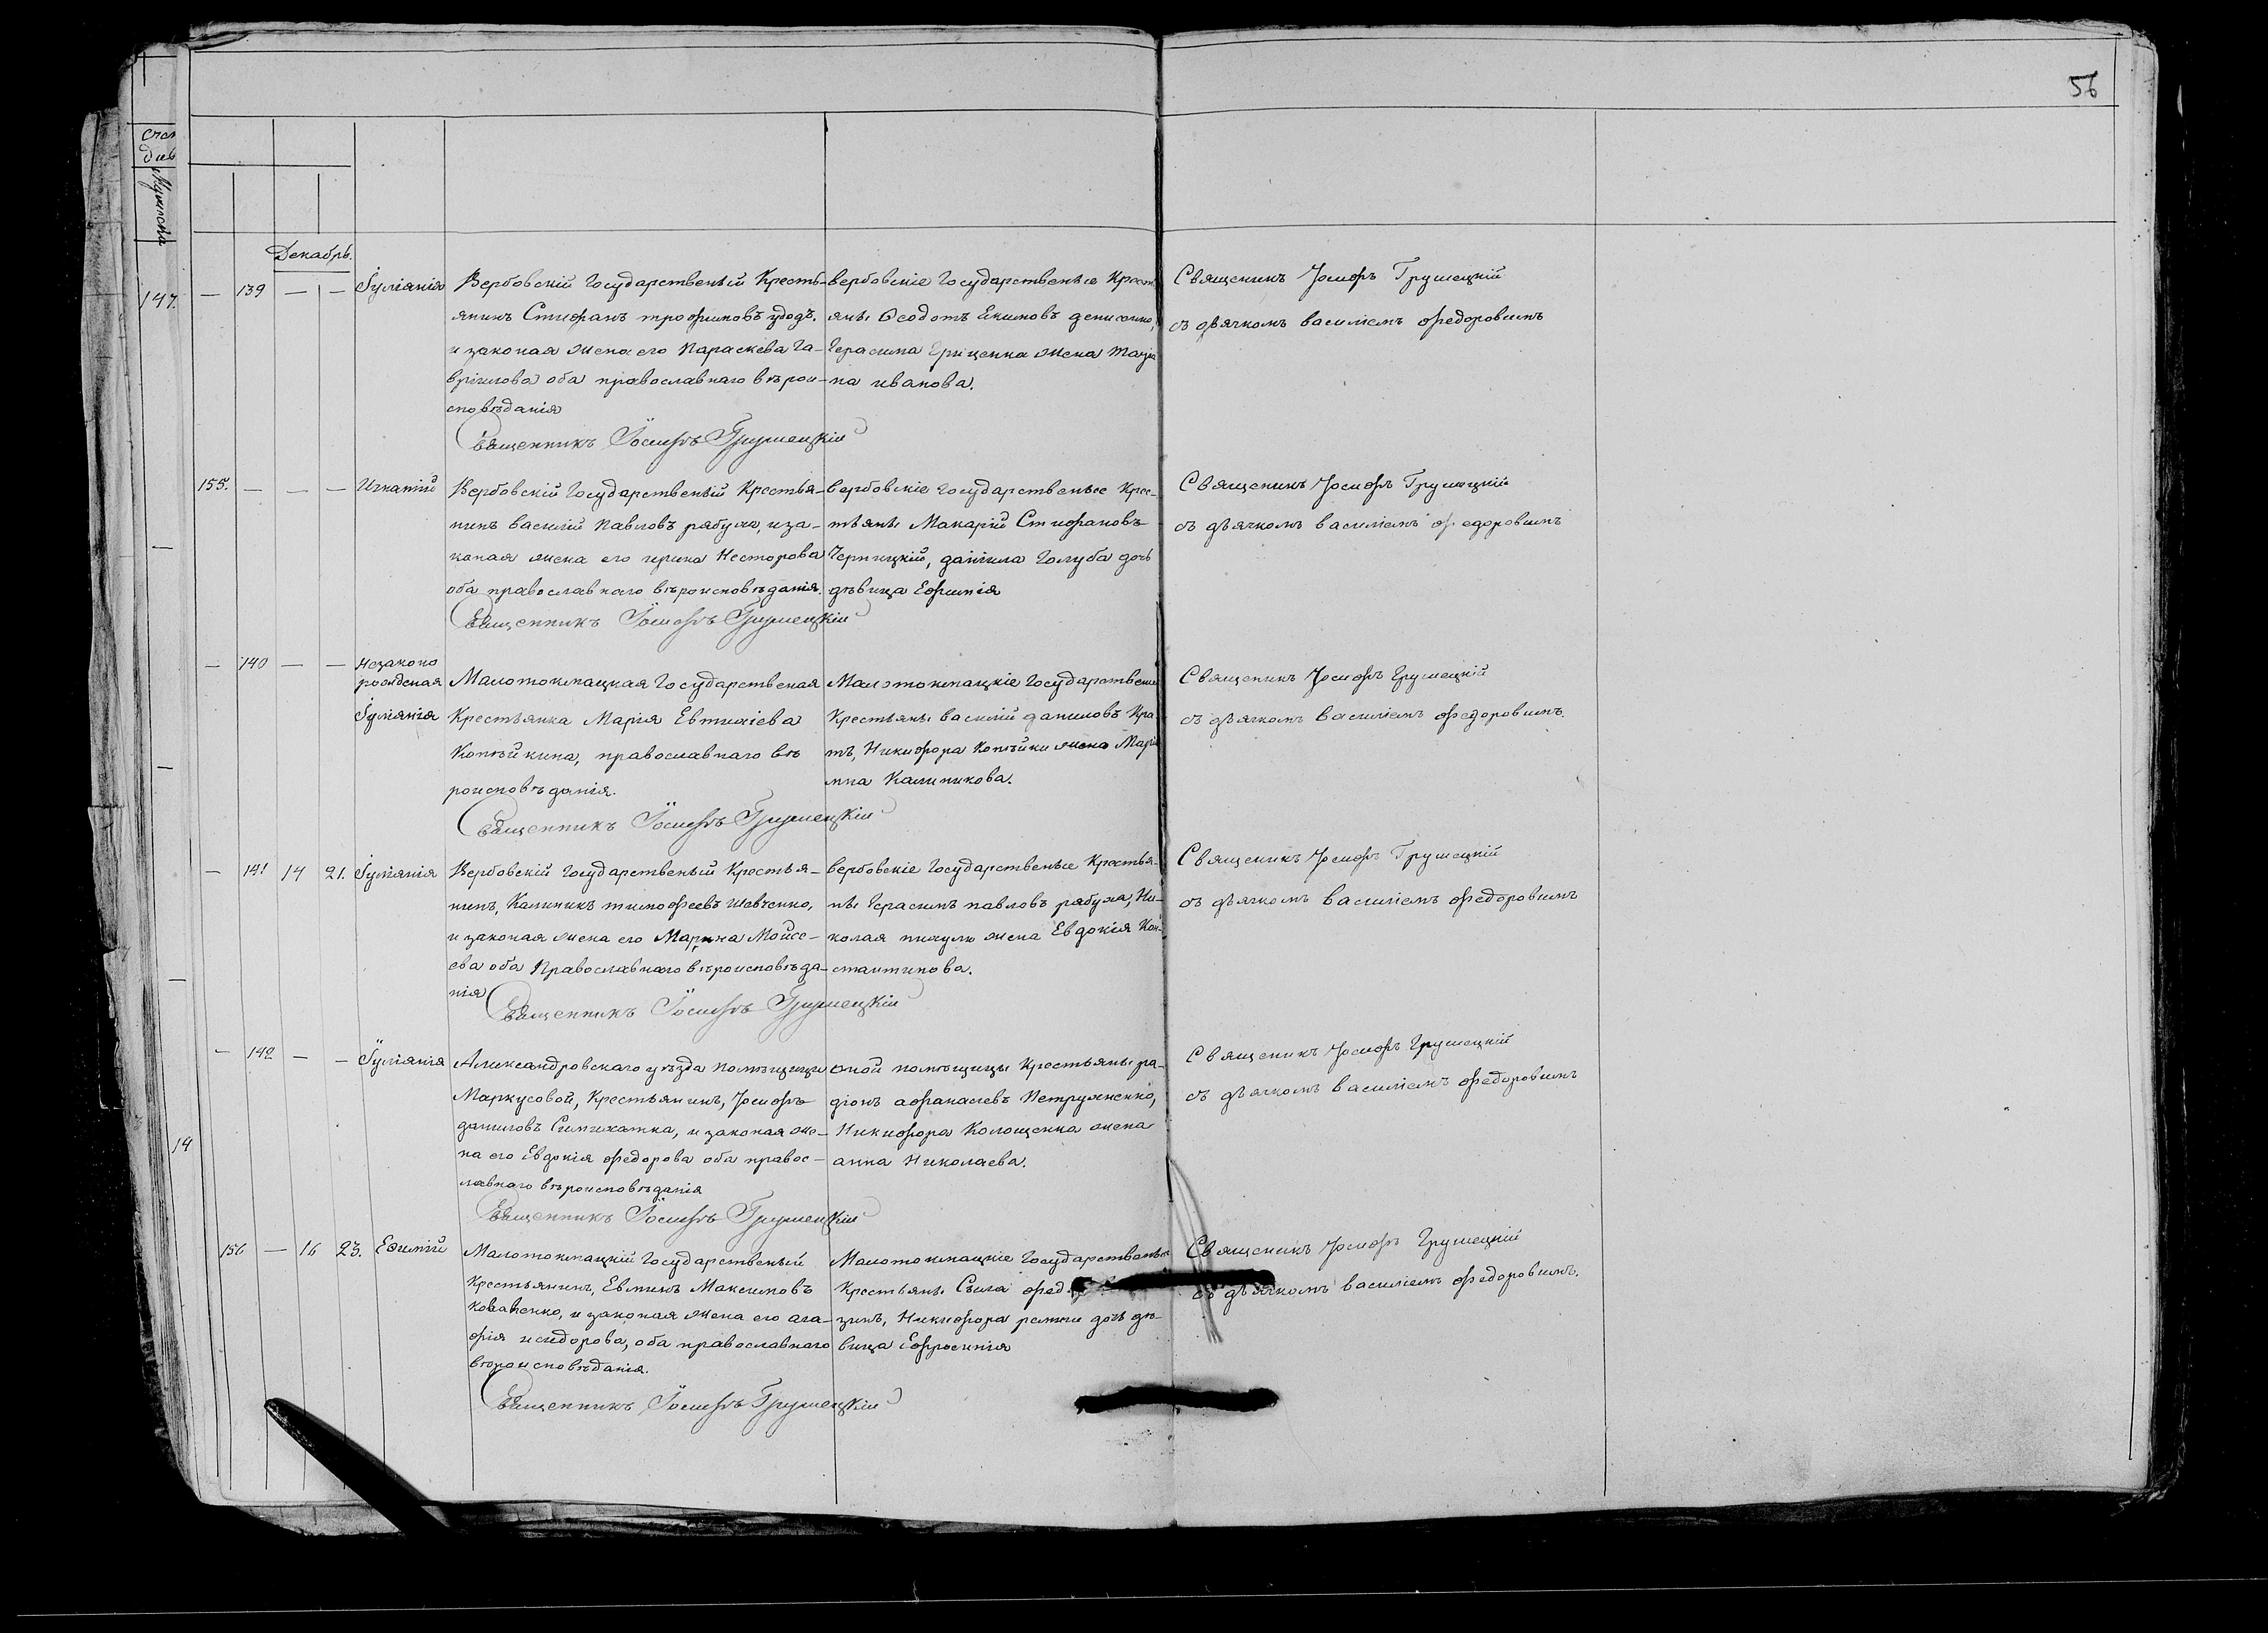 56
счет
Мужеска
Декабрь.
147.
— 139 — — Іуліанія
Вербовскій Государственый Кресть-
янинъ Стефанъ трофимовъ удодъ,
и законая жена его Параскева Га-
вріилова оба православнаго вѣрои-
сповѣданія
Священникъ Іосифъ Грушецкій
вербовскіе Государственые Крест
яне Феодотъ Екимовъ
Герасима Гриценка жена
на иванова.
Священикъ Іосифъ Грушецкій
съ дьячкомъ василіемъ федоровымъ
155. — — — Игнатій
Вербовскій Государственый Крестья-
нинъ василій Павловъ рябуха, иза-
коная жена его ирина Несторова
оба православнаго вѣроисповѣданія.
Священникъ Іосифъ Грушецкій
вербовскіе государственые Крес-
тьяне Макарій Стефановъ
Черницкій, даніила Голуба дочь
дѣвица Ефимія
Священикъ Іосифъ Грушецкій
съ дьячкомъ василіемъ федоровымъ
— 140 — — Незаконо
рожденая
Іуліанія
Малотокмацкая Государственая
Крестьянка Марія Евтихіева
Копѣйкина, православнаго вѣ
роисповѣданія.
Священникъ Іосифъ Грушецкій
Малотокмацкіе Государственые
Крестьяне василій даниловъ Кра
тъ, Никифора Копѣйки жена Марі
мна Калиникова.
Священикъ Іосифъ Грушецкій
съ дьячкомъ василіемъ федоровымъ.
— 141 14 21. Іуліанія
Вербовскій Государственый Крестья-
нинъ, Калиникъ тимофеевъ шевченко,
и законая жена его Марина Мойсе-
ева оба Православнаго вѣроисповѣда-
нія
Священникъ Іосифъ Грушецкій
вербовскіе Государственые Крестья-
не Герасимъ павловъ рябуха, Ни-
колая пихулю жена Евдокія Кон-
стантинова.
Священикъ Іосифъ Грушецкій
съ дьячкомъ василіемъ федоровымъ
— 142 — — Іуліанія
Александровскаго уѣзда помѣщицы
Маркусовой, Крестьянинъ, Іосифъ
даниловъ и законая же-
на его Евдокія федорова оба правос-
лавнаго вѣроисповѣданія
Священникъ Іосифъ Грушецкій
оной помѣщицы Крестьяне ра-
діонъ афанасіевъ Петруженко,
Никифора Колощенка жена
анна Николаева.
Священикъ Іосифъ Грушецкій
съ дьячкомъ василіемъ федоровымъ
14
156 — 16 23. Евимій
Малотокмацкій Государственый
Крестьянинъ, Евликъ Максимовъ
Коваленко, и законая жена его ага-
фія исидорова, оба православнаго
вѣроисповѣданія.
Священникъ Іосифъ Грушецкій
Малотокмацкіе Государственые
Крестьяне Сыла фед
зинъ, Никифора дочь дѣ-
вица Ефросинія
Священикъ Іосифъ Грушецкій
съ дьячкомъ василіемъ федоровымъ.